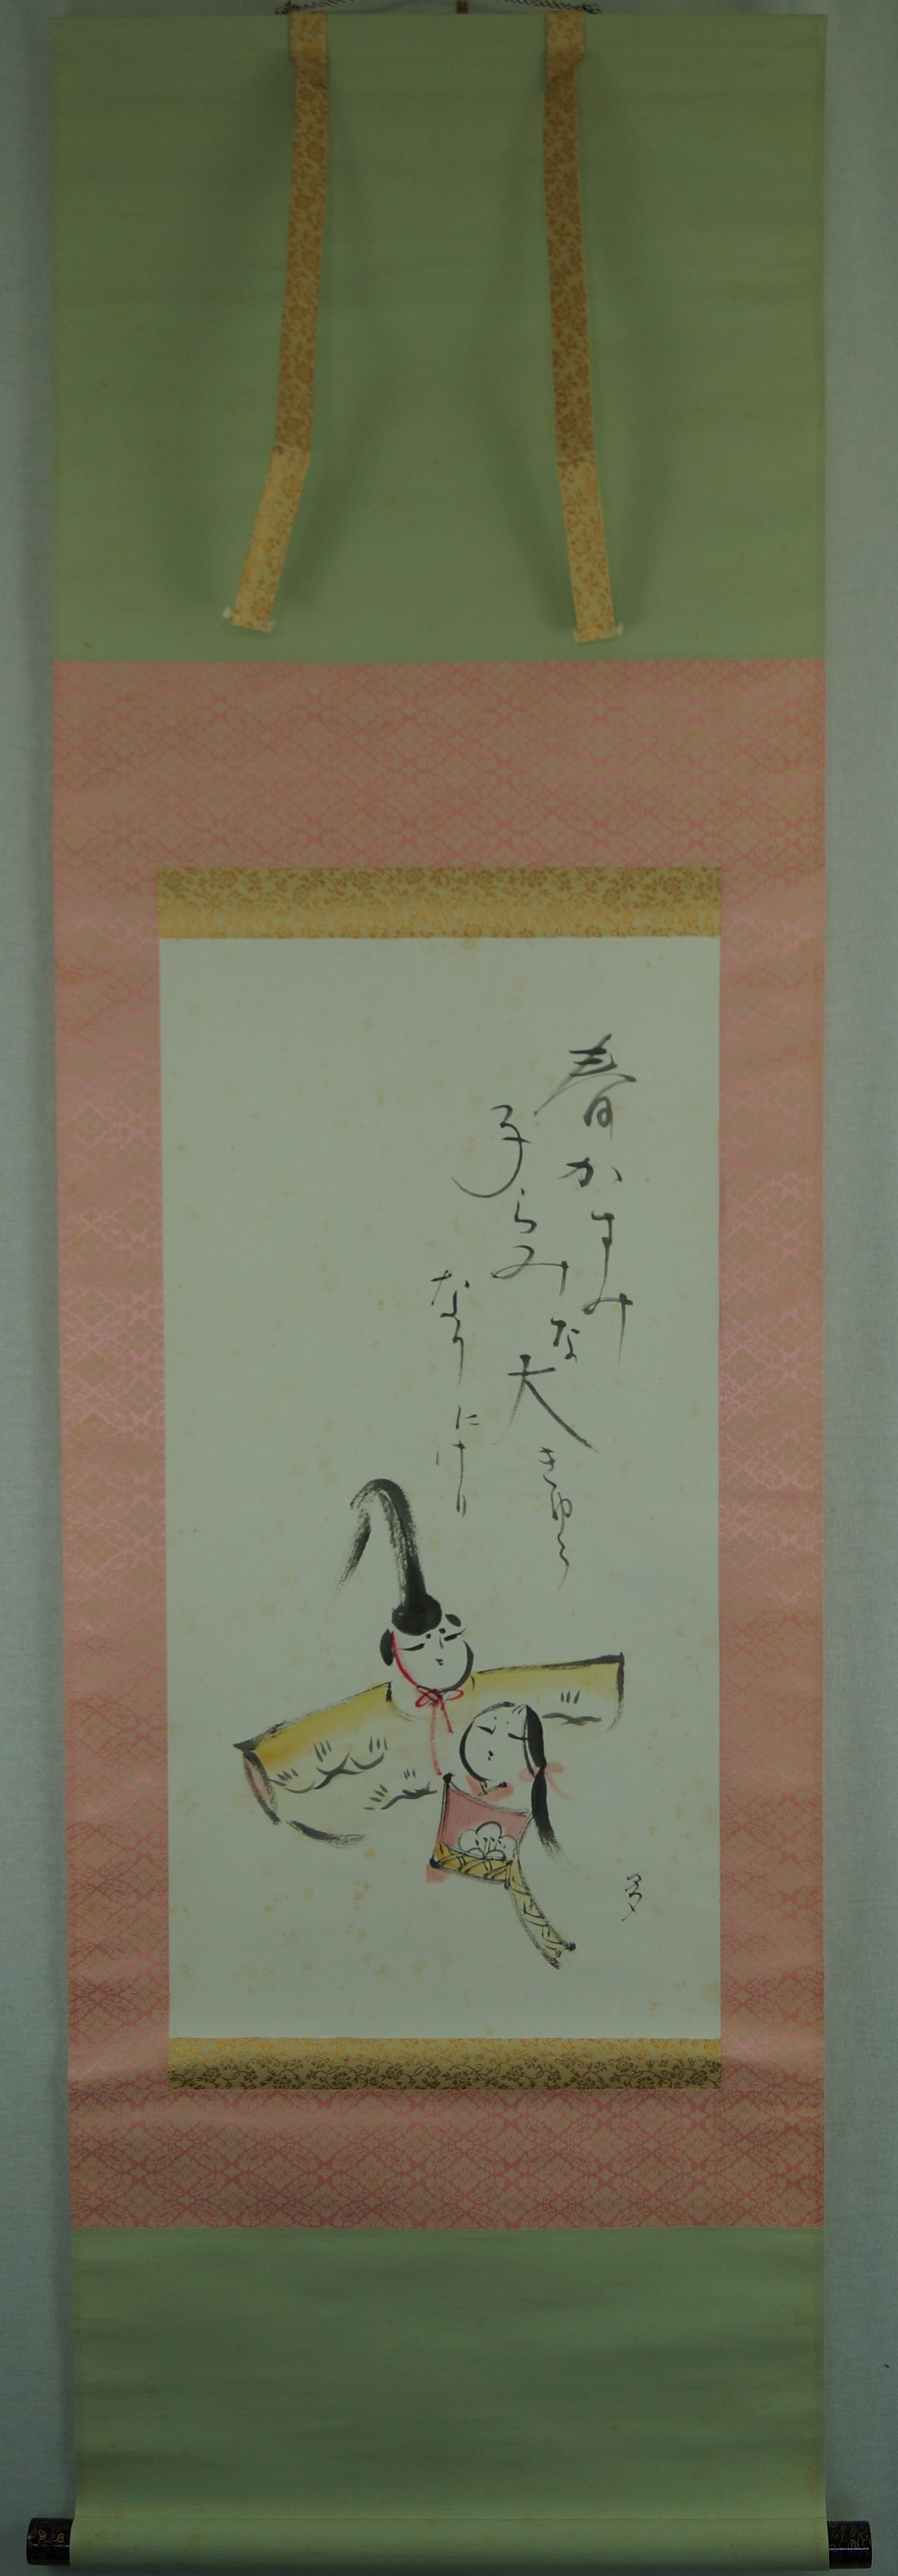 春かすみ
子らみな大きゆう
なりにけり
多